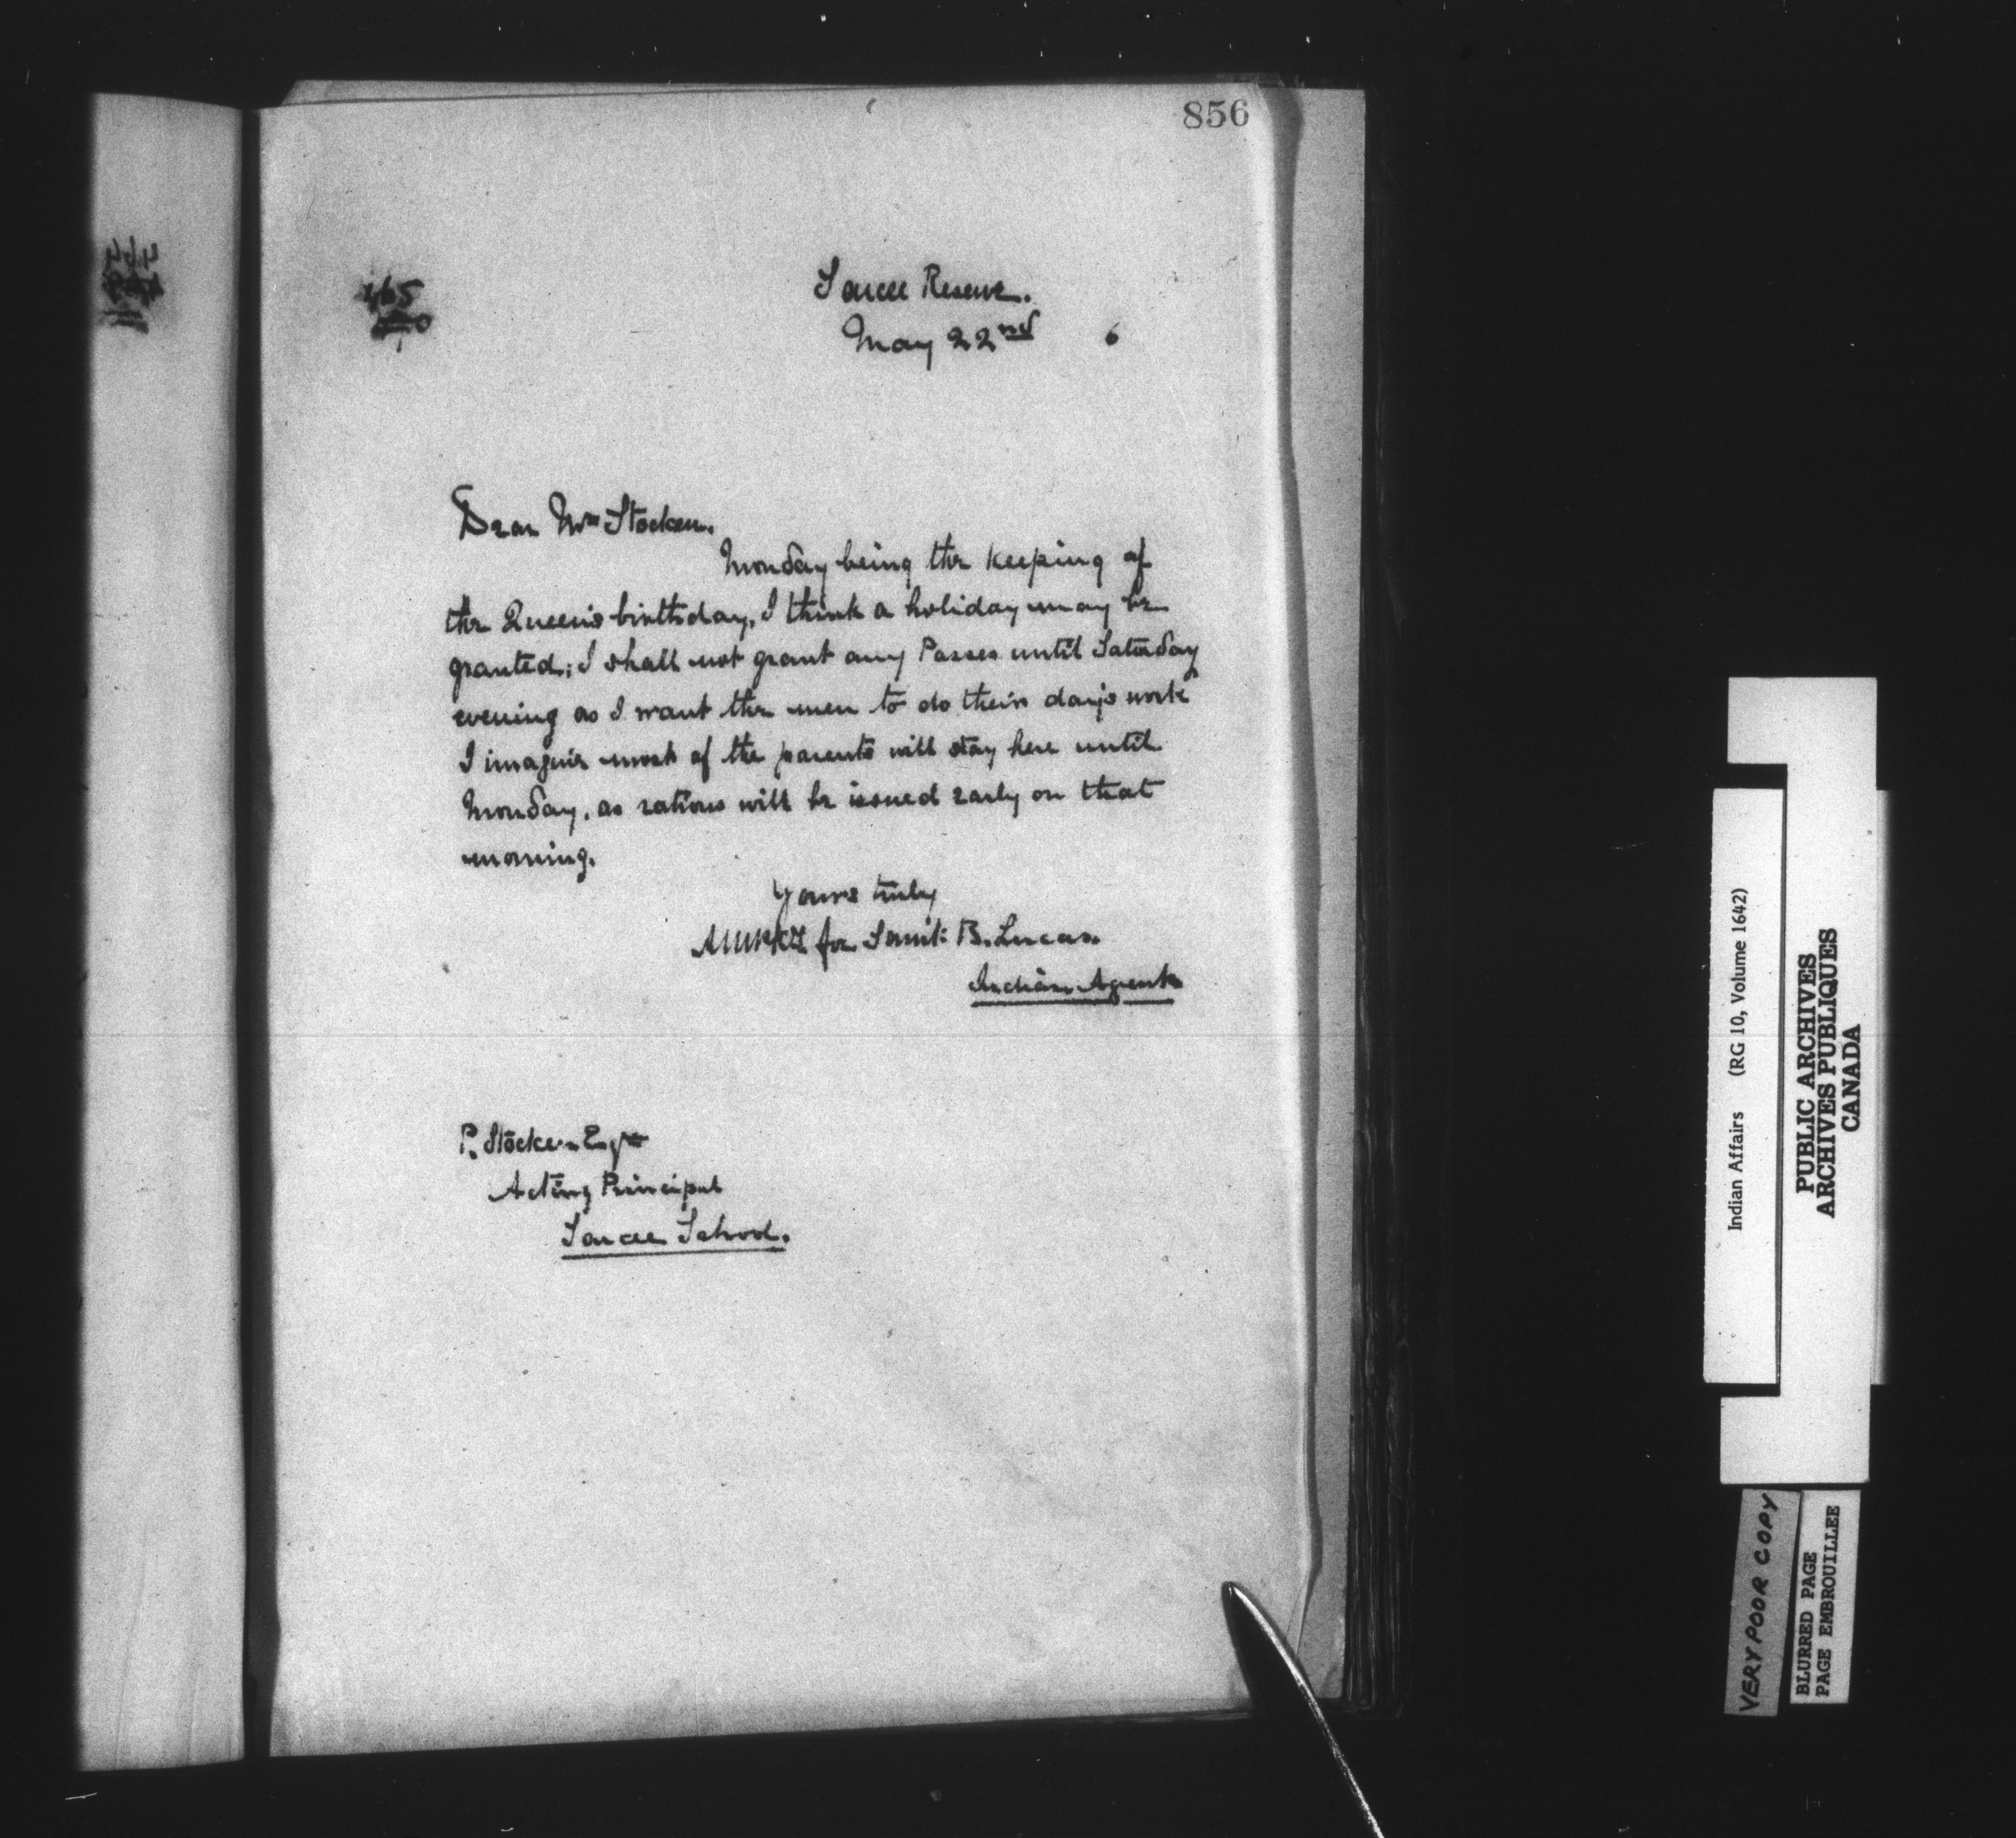 856
465
Sarcee Reserve.
May 22nd 6
Dear Mr Stocken.
Monday being the keeping of
the Queen's birthday, I think a holiday may be
granted; I shall not grant any Passes until Saturday
evening as I want the men to do their day's work
I imagine most of the parents will stay here until
Monday, as rations will be issued early on that
morning.
Yours truly
for Saml: B. Lucas.
Indian Agent
P. Stocken Esqre
Acting Principal
Sarcee School.
Indian Affairs (RG 10, Volume 1642)
PUBLIC ARCHIVES
ARCHIVES PUBLIQUES
CANADA
VERY POOR COPY
BLURRED PAGE
PAGE EMBROUILLEE